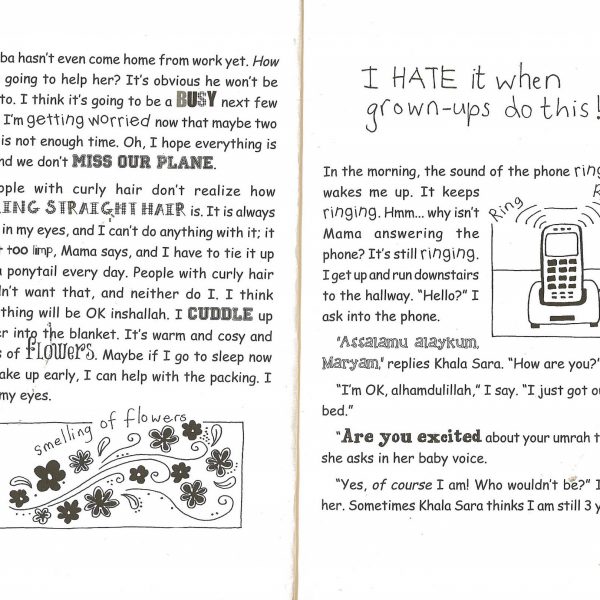 ba hasn't even come home from work yet. How
going to help her? It's obvious he won't be
to. I think it's going to be a BUSY next few
I'm getting worried now that maybe two
is not enough time. Oh, I hope everything is
nd we don't MISS OUR PLANE.
ople with curly hair don't realize how
ING STRAIGHT HAIR is. It is always
in my eyes, and I can't do anything with it; it
t too limp, Mama says, and I have to tie it up
a ponytail every day. People with curly hair
n't want that, and neither do I. I think
thing will be OK inshallah. I CUDDLE up
er into the blanket. It's warm and cosy and
s of flowers. Maybe if I go to sleep now
ake up early, I can help with the packing. I
my eyes.
smelling of flowers
I HATE it when
grown-ups do this!
In the morning, the sound of the phone ring
wakes me up. It keeps
ringing. Hmm... why isn't
Mama answering the
phone? It's still ringing.
I get up and run downstairs
to the hallway. "Hello?" I
ask into the phone.
Ring
R
"Assalamu alaykum,
Maryam," replies Khala Sara. "How are you?"
"I'm OK, alhamdulillah," I say. "I just got ou
bed."
"Are you excited about your umrah t
she asks in her baby voice.
"Yes, of course I am! Who wouldn't be?" I
her. Sometimes Khala Sara thinks I am still 3 y